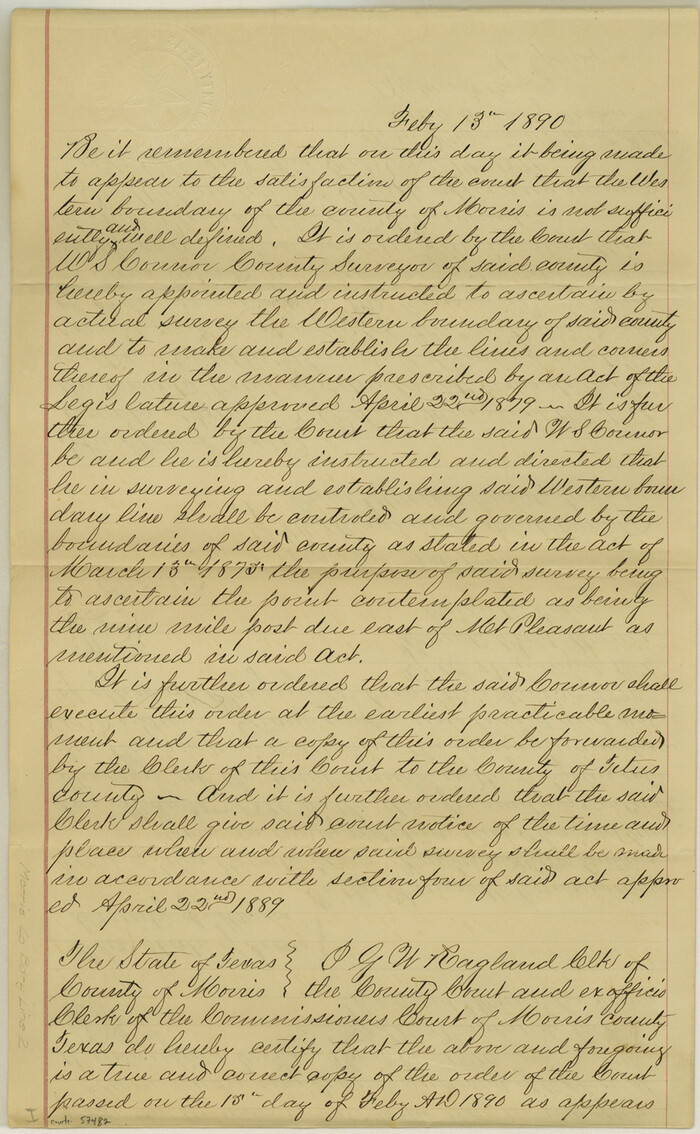 Feby 13th 1890
Be it remembered that on this day it being made
to appear to the satisfaction of the court that the Wes
tern boundary of the county of Morris is not suffici
ently and well defined. It is ordered by the Court that
W S Connor County Surveyor of said county is
hereby appointed and instructed to ascertain by
actual survey the Western boundary of said county
and to make and establish the lines and corners
thereof in the manner prescribed by an Act of the
Legislature approved April 22nd 1879 ~ It is fur
ther ordered by the Court that the said W S Connor
be and he is hereby instructed and directed that
he in surveying and establishing said Western boun
dary line shall be controled and governed by the
boundaries of said county as stated in the act of
March 13th 1875. the purpose of said survey being
to ascertain the point contemplated as being
the nine mile post due east of Mt Pleasant as
mentioned in said Act.
It is further ordered that the said Connor shall
execute this order at the earliest practicable mo=
ment and that a copy of this order be forwarded
by the Clerk of this Court to the County of Titus
county ~ And it is further ordered that the said
Clerk shall give said court notice of the time and
place when and when said survey shall be made
in accordance with section four of said act approv
ed April 22nd 1889
The State of Texas } I G W Ragland Clk of
County of Morris } the County Court and exofficio
Clerk of the Commissioners Court of Morris county
Texas do hereby certify that the above and foregoing
is a true and correct copy of the order of the Court
passed on the 13th day of Feby AD 1890 as appears
Morris Co Bdry Line 2
I
57482